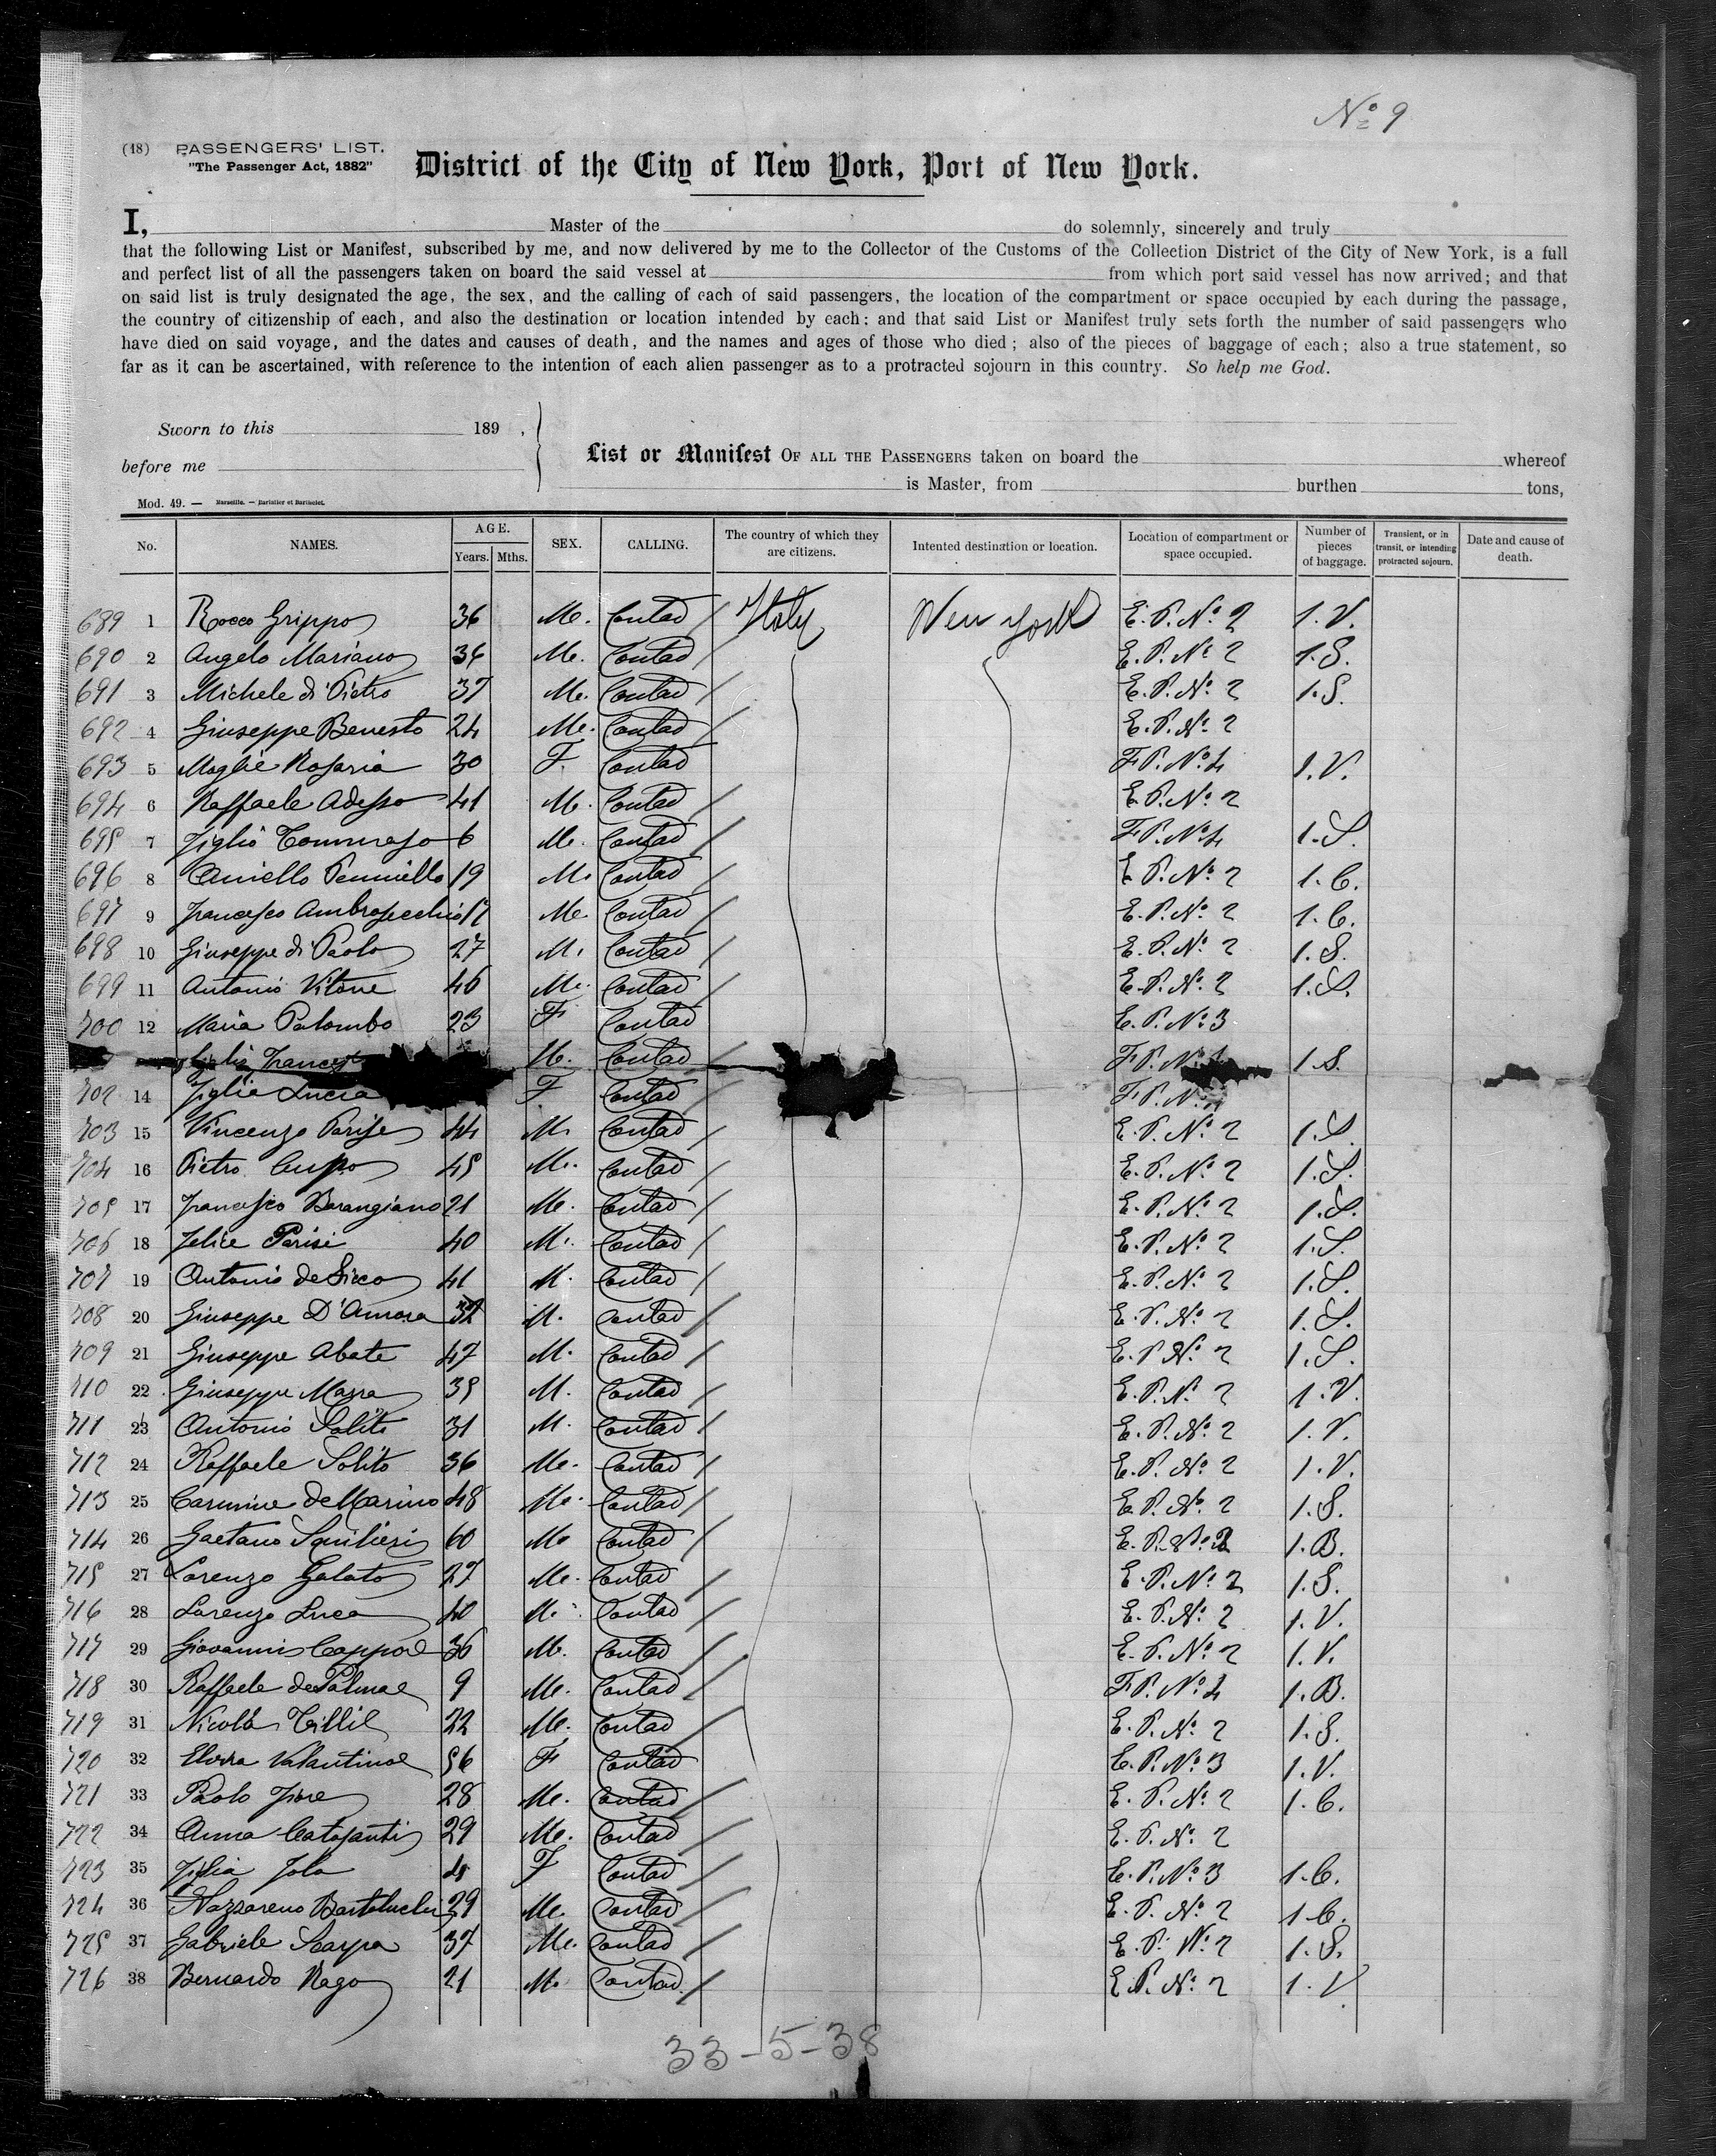 Nº 9
(18) PASSENGERS' LIST.
"The Passenger Act, 1882"
District of the City of New York, Port of New York.
I, Master of the do solemnly, sincerely and truly
that the following List or Manifest, subscribed by me, and now delivered by me to the Collector of the Customs of the Collection District of the City of New York, is a full
and perfect list of all the passengers taken on board the said vessel at from which port said vessel has now arrived; and that
on said list is truly designated the age, the sex, and the calling of each of said passengers, the location of the compartment or space occupied by each during the passage,
the country of citizenship of each, and also the destination or location intended by each; and that said List or Manifest truly sets forth the number of said passengers who
have died on said voyage, and the dates and causes of death, and the names and ages of those who died; also of the pieces of baggage of each; also a true statement, so
far as it can be ascertained, with reference to the intention of each alien passenger as to a protracted sojourn in this country. So help me God.
Sworn to this 189 ,
before me
List or Manifest OF ALL THE PASSENGERS taken on board the whereof
is Master, from burthen tons,
Mod. 49. — Marseille. — Barlatier et Barthelet.
No. NAMES. AGE. Years. Mths. SEX. CALLING. The country of which they are citizens. Intented destination or location. Location of compartment or space occupied. Number of pieces of baggage. Transient, or in transit, or intending protracted sojourn. Date and cause of death.
689 1 Rocco Grippo 36 M. Contad / Italy New York E. P. Nº 2 1. V.
690 2 Angelo Mariano 34 M. Contad / E. P. Nº 2 1. S.
691 3 Michele di Pietro 37 M. Contad / E. P. Nº 2 1. S.
692 4 Giuseppe Benesto 24 M. Contad / E. P. Nº 2
693 5 Moglie Rosaria 30 F. Contad F. P. Nº 4 1. V.
694 6 Raffaele Adesso 41 M. Contad / E. P. Nº 2
695 7 Figlio Tommaso 6 M. Contad / F. P. Nº 4 1. S.
696 8 Aniello Penniello 19 M. Contad / E. P. Nº 2 1. C.
697 9 Francesco Ambrosecchio 17 M. Contad / E. P. Nº 2 1. C.
698 10 Giuseppe di Paolo 27 M. Contad / E. P. Nº 2 1. S.
699 11 Antonio Vitone 46 M. Contad / E. P. Nº 2 1. S.
700 12 Maria Palombo 23 F Contad E. P. Nº 3
M. Contad / F. P. 1 S.
702 14 Figlia Lucia F Contad F. P. N
703 15 Vincenzo Parise 44 M. Contad / E. P. Nº 2 1. S.
704 16 Pietro 45 M. Contad / E. P. Nº 2 1. S.
705 17 Francesco Barangiano 21 M. Contad / E. P. Nº 2 1. S.
706 18 Felice Parisi 40 M. Contad / E. P. Nº 2 1. S.
707 19 Antonio de Sicco 41 M. Contad / E. P. Nº 2 1. S.
708 20 Giuseppe D'Amora 32 M. Contad / E. P. Nº 2 1. S.
709 21 Giuseppe Abate 47 M. Contad / E. P. Nº 2 1. S.
710 22 Giuseppe Massa 35 M. Contad / E. P. Nº 2 1. V.
711 23 Antonio Solito 31 M. Contad / E. P. Nº 2 1. V.
712 24 Raffaele Solito 36 M. Contad / E. P. Nº 2 1. V.
713 25 Carmine de Marino 48 M. Contad / E. P. Nº 2 1. S.
714 26 Gaetano 60 M. Contad / E. P. Nº 2 1. B.
715 27 Lorenzo Galato 27 M. Contad / E. P. Nº 2 1. S.
716 28 Lorenzo Luca 40 M. Contad / E. P. Nº 2 1. V.
717 29 Giovanni 36 M. Contad / E. P. Nº 2 1. V.
718 30 Raffaele de Palma 9 M. Contad / F. P. Nº 4 1. B.
719 31 Nicola 22 M. Contad / E. P. Nº 2 1. S.
720 32 Valantina 56 F Contad E. P. Nº 3 1. V.
721 33 Paolo Fiore 28 M. Contad / E. P. Nº 2 1. C.
722 34 Anna Catasanti 29 M. Contad / E. P. Nº 2
723 35 Figlia Jola F Contad / E. P. Nº 3 1. C.
724 36 Nazzareno 29 M. Contad / E. P. Nº 2 1 C.
725 37 Gabriele Scarpa 37 M. Contad / E. P. Nº 2 1. S.
726 38 Bernardo Rago 21 M. Contad / E. P. Nº 2 1. V.
33-5-38